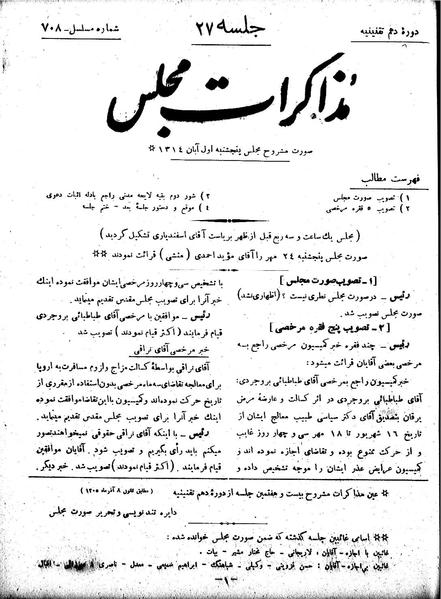 دورهٔ دهم تقنینیه
جلسه ۲۷
شماره مسلسل - ۷۰۸
مذاکرات مجلس
صورت مشروح مجلس پنجشنبه اول آبان ۱۳۱۴ *
فهرست مطالب
۱) تصویب صورت مجلس
۲) تصویب ۵ فقره مرخصی
۳) شور دوم بقیه لایحه مدنی راجع بادله اثبات دعوی
۴) موقع و دستور جلسهٔ بعد - ختم جلسه
( مجلس یک ساعت و سه ربع قبل از ظهر بریاست آقای اسفندیاری تشکیل گردید )
صورت مجلس پنجشنبه ۲۴ مهر را آقای مؤید احدی ( منشی ) قرائت نمودند **
[ ۱- تصویب صورت مجلس ]
رئیس - در صورت مجلس نظری نیست ؟ ( اظهاری نشد )
صورت مجلس تصویب شد.
[ ۲- تصویب پنج فقره مرخصی ]
رئیس - چند فقره خبر کمیسیون مرخصی راجع به
مرخصی بعضی آقایان قرائت میشود:
خبر کمیسیون راجع بمرخصی آقای طباطبائی بروجردی:
آقای طباطبائی بروجردی در اثر کسالت و عارضهٔ مرض
یرقان بتصدیق آقای دکتر سیاسی طبیب معالج ایشان از
تاریخ ۱۶ شهریور تا ۱۸ مهر سی و چهار روز غایب
و از حرکت ممنوع بوده و تقاضای اجازه نموده اند و
کمیسیون عرایض عذر ایشان را موجه تشخیص داده و
با تشخیص سی و چهار روز مرخصی ایشان موافقت نموده اینک
خبر آنرا برای تصویب مجلس مقدس تقدیم مینماید.
رئیس - موافقین با مرخصی آقای طباطبائی بروجردی
قیام فرمایند ( اکثر قیام نمودند ) تصویب شد
خبر مرخصی آقای نراقی
آقای نراقی بواسطهٔ کسالت مزاج و لزوم مسافرت به اروپا
برای معالجه تقاضای سه ماه مرخصی بدون استفاده از مقرری از
تاریخ حرکت نموده اند و کمیسیون با این تقاضا موافقت نموده
اینک خبر آنرا برای تصویب مجلس مقدس تقدیم مینماید.
رئیس - با اینکه آقای نراقی حقوقی نمیخواهند تصور
میکنم باید رأی بگیریم و تصویب شود. آقایان موافقین
قیام فرمایند . ( اکثر قیام نمودند ) تصویب شد. خبر دیگر.
* عین مذاکرات مشروح بیست و هفتمین جلسه از دورهٔ دهم تقنینیه
( مطابق قانون ۸ آذر ماه ۱۳۰۵ )
دایره تندنویسی و تحریر صورت مجلس
** اسامی غائبین جلسه گذشته که ضمن صورت مجلس خوانده شده :
غائبین با اجازه - آقایان : لاریجانی - حاج غفار مشیر - بیات .
غائبین بی اجازه - آقایان : حسن قزوینی - وکیلی - شباهنگ - ابراهیم ضیمی - معدل - ناصری
-۱-